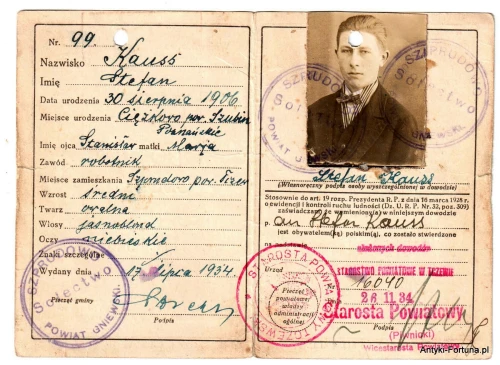 Nr. 99
Nazwisko Kauss
Imię Stefan
Data urodzenia 30 sierpnia 1906
Miejsce urodzenia Ciężkoro pow. Szubin
Poznańskie
Imię ojca Stanisław matki Marja
Zawód robotnik
Miejsce zamieszkania pow. Tczew
Wzrost średni
Twarz owalna
Włosy jasnoblond
Oczy niebieskie
Znaki szczególne
Wydany dnia 17 lipca 1934.
Pieczęć gminy
Podpis
SZPRUDOWO
Sołectwo
POWIAT GNIEWSKI
SZPRUDOWO
Sołectwo
POWIAT GNIEWSKI
Stefan Kauss
(Własnoręczny podpis osoby wyszczególnionej w dowodzie)
Stosownie do art. 19 rozp. Prezydenta R. P. z dnia 16 marca 1928 r.
o ewidencji i kontroli ruchu ludności (Dz. U. R. P. Nr. 32, poz. 309)
zaświadcza się, że wymieniony w niniejszym dowodzie
p. an Stefan Kauss
jest obywatelem polskim, co zostało stwierdzone
na podstawie złożonych dowodów
Urząd
STAROSTWO POWIATOWE W TCZEWIE
16040
26 11. 34
Starosta Powiatowy
(Piwnicki)
Podpis
Wicestarosta Powiatowy
STAROSTA POWIATOWY TCZEWSKI
Pieczęć
powiatowej
władzy
administracji
ogólnej
Antyki-Fortuna.pl